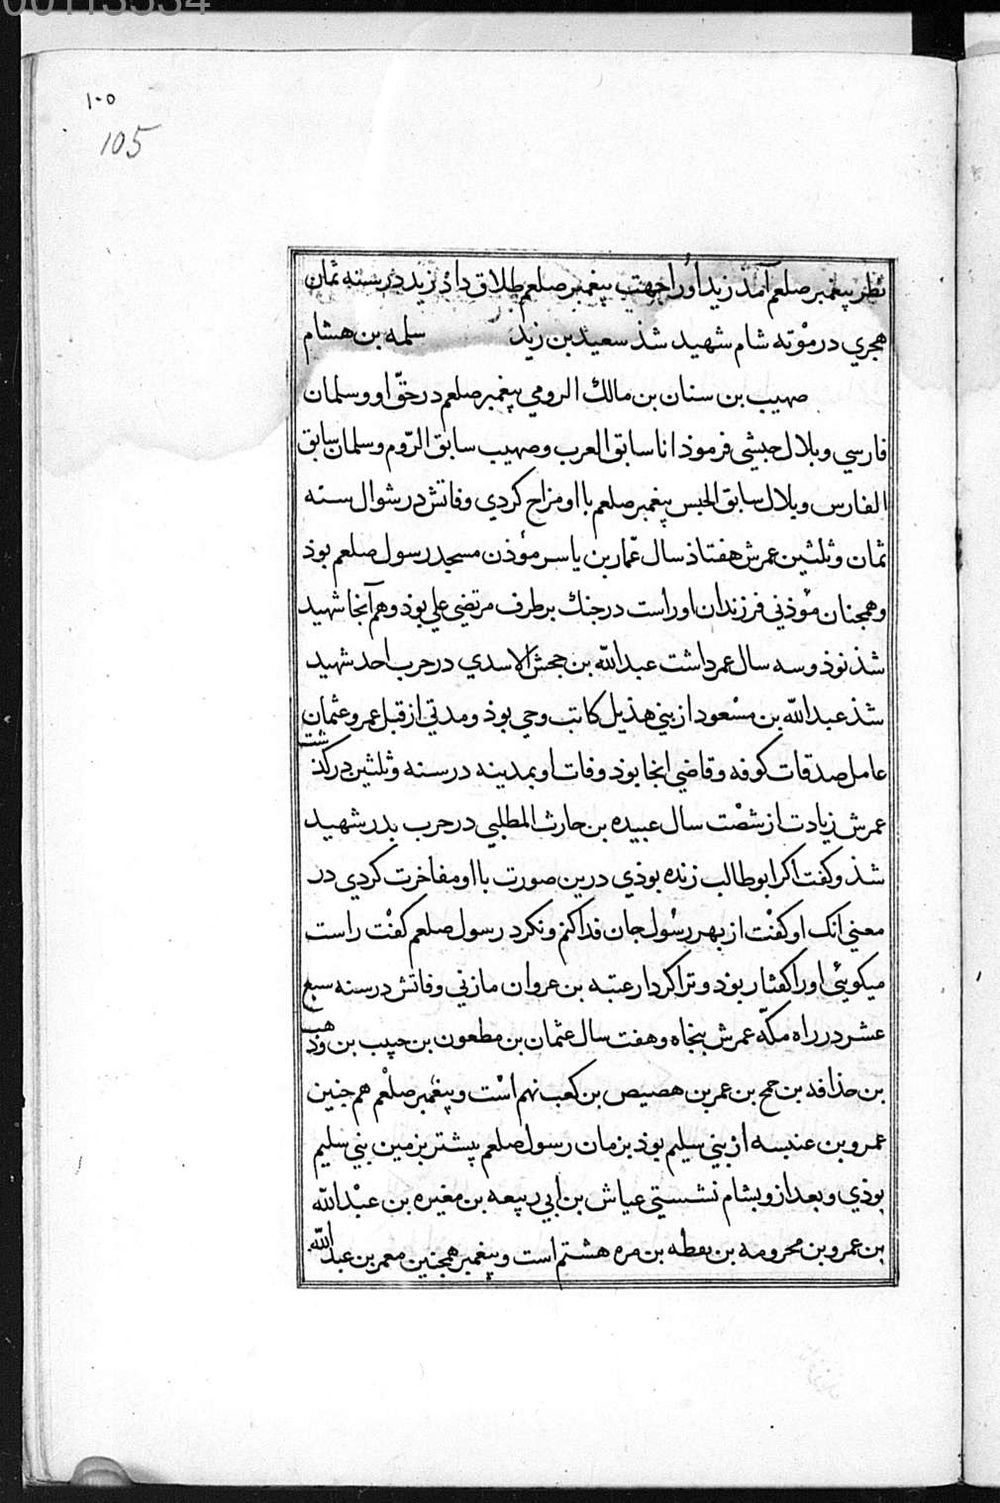 00113534
۱۰۵
105
نظر پیغمبر صلعم آمد زید اورا جهت پیغمبر صلعم طلاق داد زید در سنه ثمان
هجری در مؤته شام شهید شذ سعید بن زید سلمه بن هشام
صهیب بن سنان بن مالك الرومی پیغمبر صلعم در حقّ او و سلمان
فارسی و بلال حبشی فرموذ انا سابق العرب و صهیب سابق الرّوم و سلمان سابق
الفارس و بلال سابق الحبس پیغمبر صلعم با او مزاح کردی وفاتش در شوال سنه
ثمان و ثلثین عمرش هفتاذ سال عمّار بن یاسر مؤذن مسجد رسول صلعم بوذ
و همچنان مؤذنی فرزندان اوراست در جنك بر طرف مرتضی علی بوذ و هم آنجا شهید
شذ نوذ و سه سال عمر داشت عبدالله بن جحش الاسدی در حرب احد شهید
شذ عبدالله بن مسعود از بنی هذیل کاتب وحی بوذ و مدتی از قبل عمر و عثمان
عامل صدقات کوفه و قاضی انجا بوذ وفات او بمدینه در سنه و ثلثین در کذشت
عمرش زیادت از شصت سال عبیده بن حارث المطلبی در حرب بدر شهید
شذ و کفت اکر ابوطالب زنده بوذی درین صورت با او مفاخرت کردی در
معنی انک او کفت از بهر رسول جان فدا کنم و نکرد رسول صلعم کفت راست
میکویئی اورا کفتار بوذ و ترا کردار عتبه بن عروان مازنی وفاتش در سنه سبع
عشر در راه مکّه عمرش پنجاه و هفت سال عثمان بن مطعون بن حبیب بن وهب
بن حذافه بن جمح بن عمر بن هصیص بن کعب نهم است و پیغمبر صلعم هم چنین
عمرو بن عنبسه از بنی سلیم بوذ بزمان رسول صلعم پیشتر بزمین بنی سلیم
بوذی و بعد ازو بشام نشستی عیاش بن ابی ربیعه بن مغیره بن عبدالله
بن عمرو بن محرومه بن یقظه بن مره هشتم است و پیغمبر همچنین معمر بن عبدالله